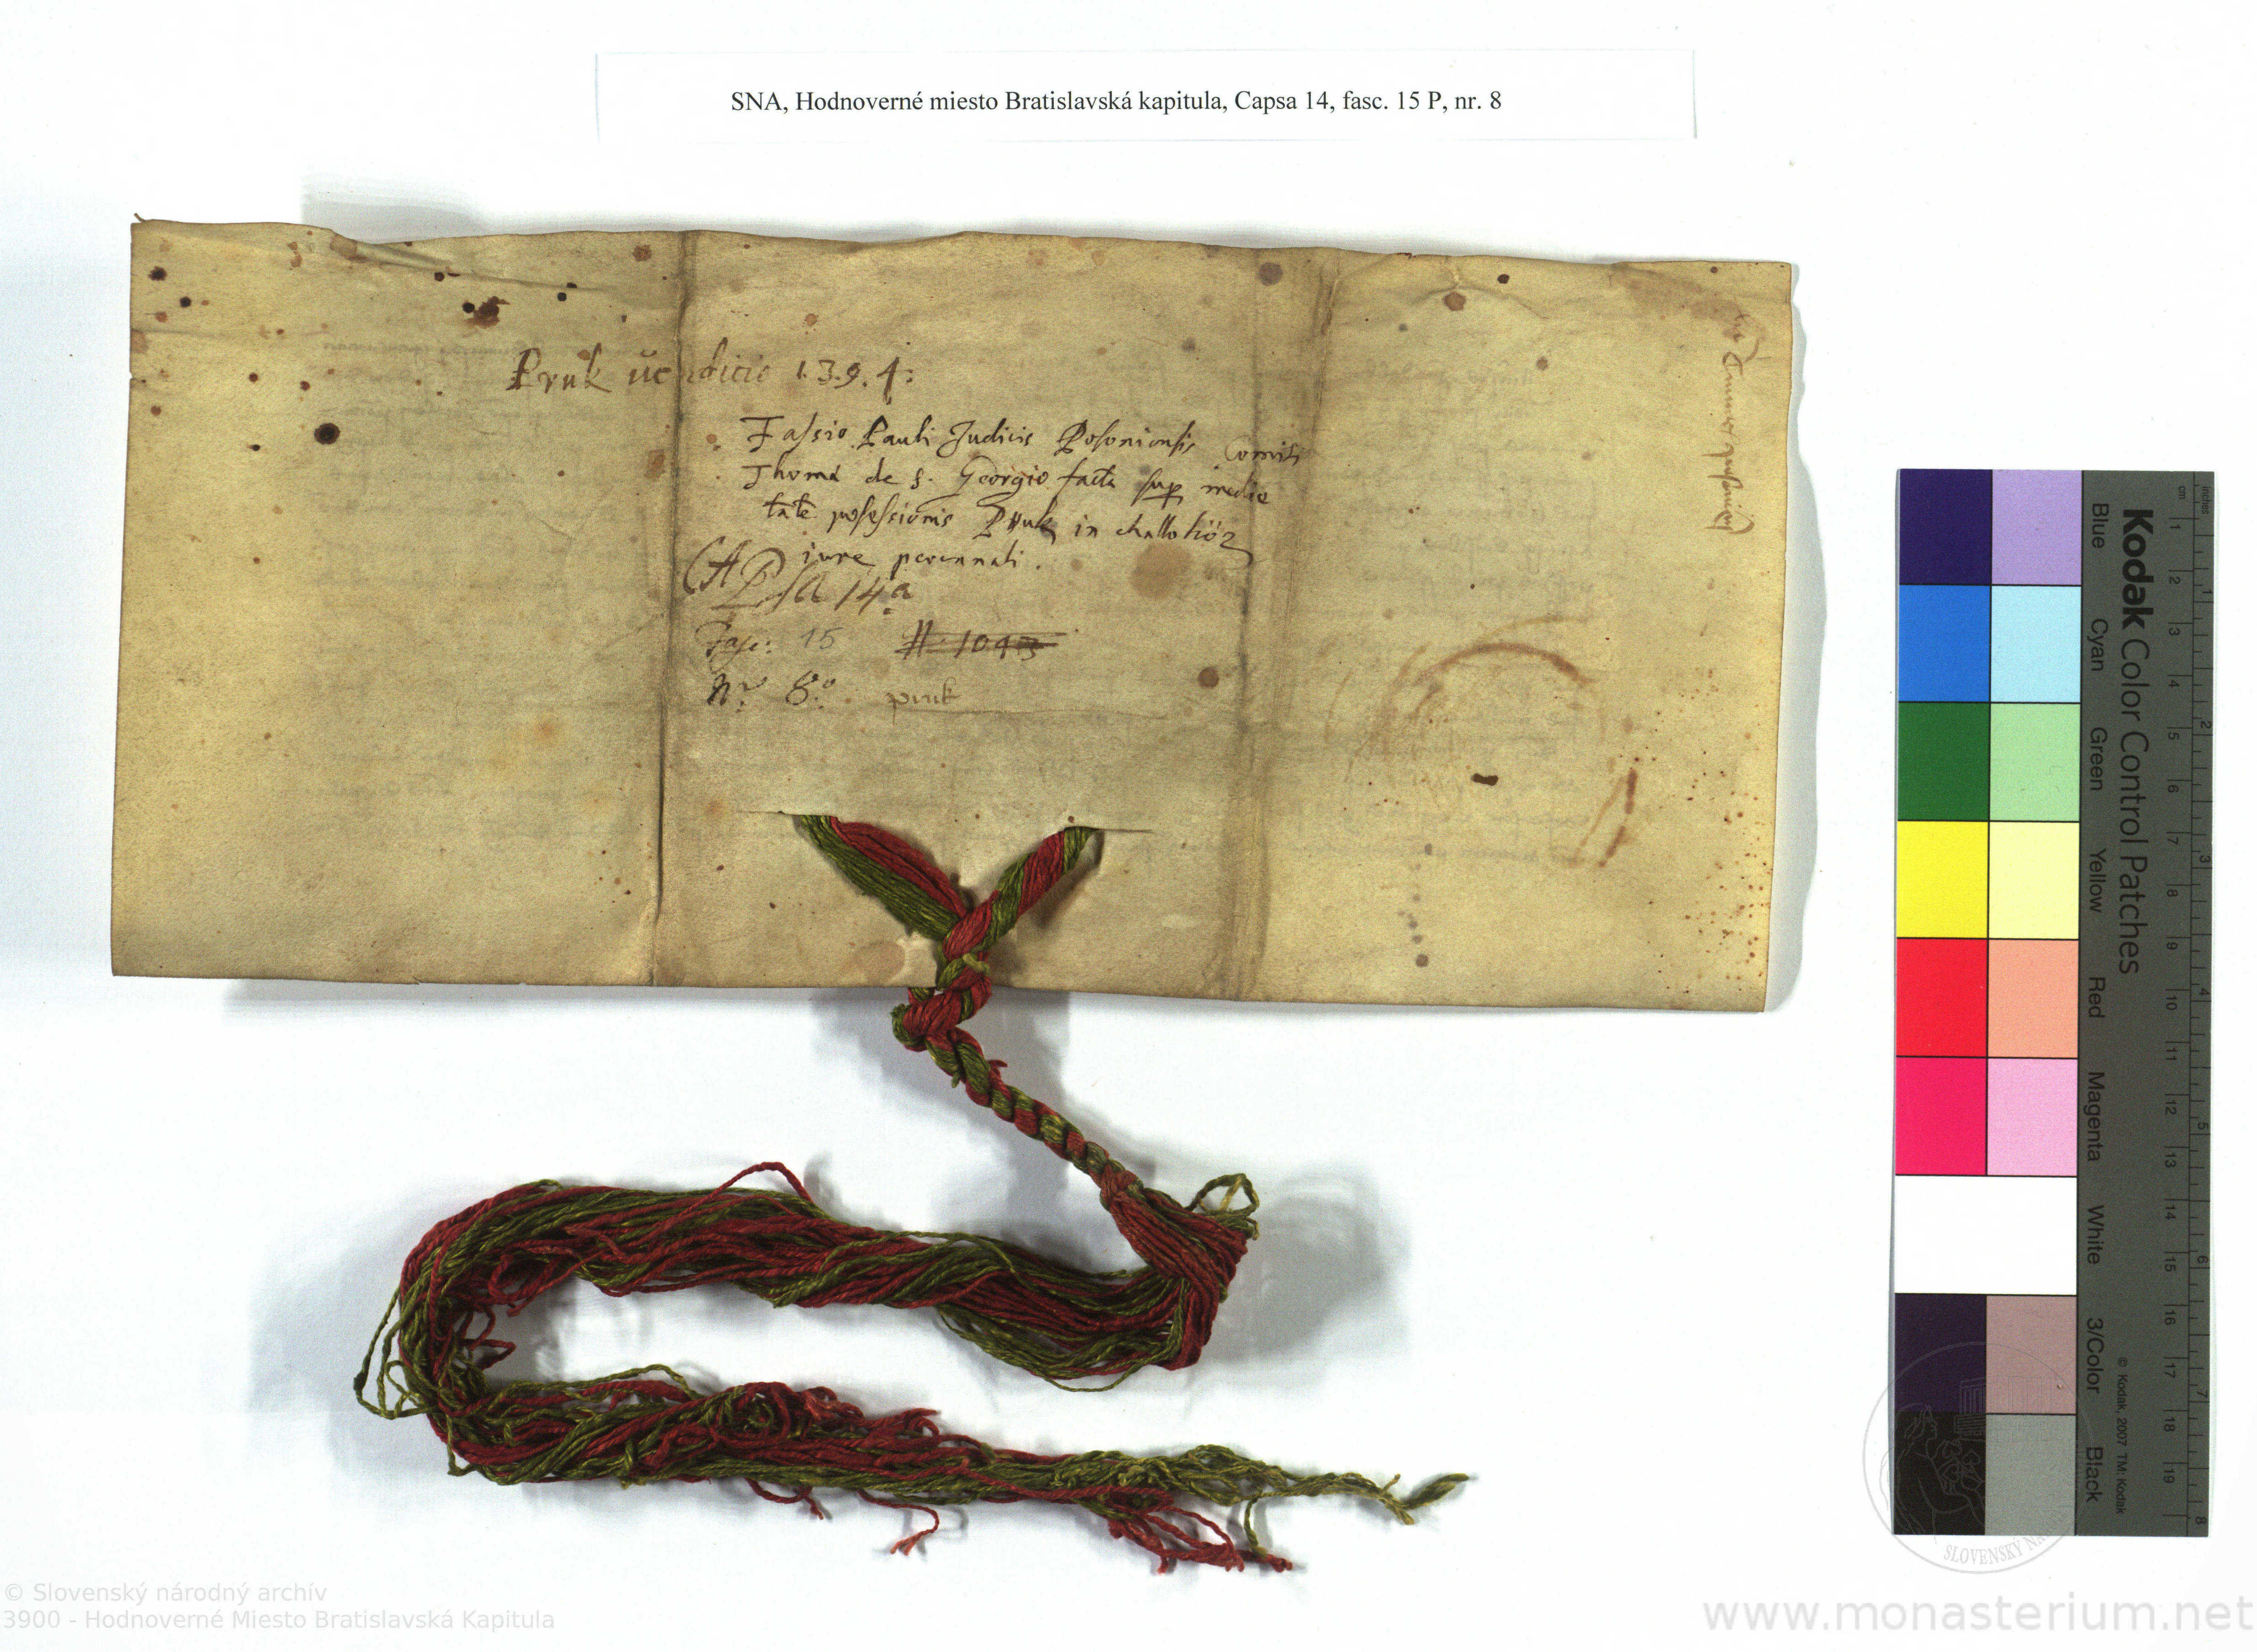 SNA, Hodnoverné miesto Bratislavská kapitula, Capsa 14, fasc. 15 P, nr. 8
Pruk 1.3.9.4:
Fassio Pauli Judicis Posoniensis Comiti
Thoma de S. Georgio facta sup medie
tate possessionis Pruk in challokiöz
iure perennali.
CAPSA 14a
Fasc: 15 N. 1043
Nr. 8o pruk
Kodak Color Control Patches
Blue Cyan Green Yellow Red Magenta White 3/Color Black
© Kodak, 2007 TM: Kodak
cm 1 2 3 4 5 6 7 8 9 10 11 12 13 14 15 16 17 18 19
inches 1 2 3 4 5 6 7 8
SLOVENSKÝ
© Slovenský národný archív
3900 - Hodnoverné Miesto Bratislavská Kapitula
www.monasterium.net